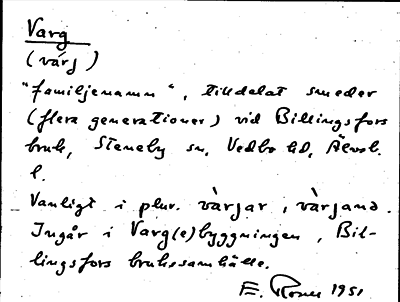 Varg
(várj)
"familjenamn", tilldelat smeder
(flera generationer) vid Billingsfors
bruk, Steneby sn, Vedbo hd, Älvsb.
l.
Vanligt i plur. vàrjar, vàrjana.
Ingår i Varg(e)byggningen, Bil-
lingsfors brukssamhälle.
E. 1951